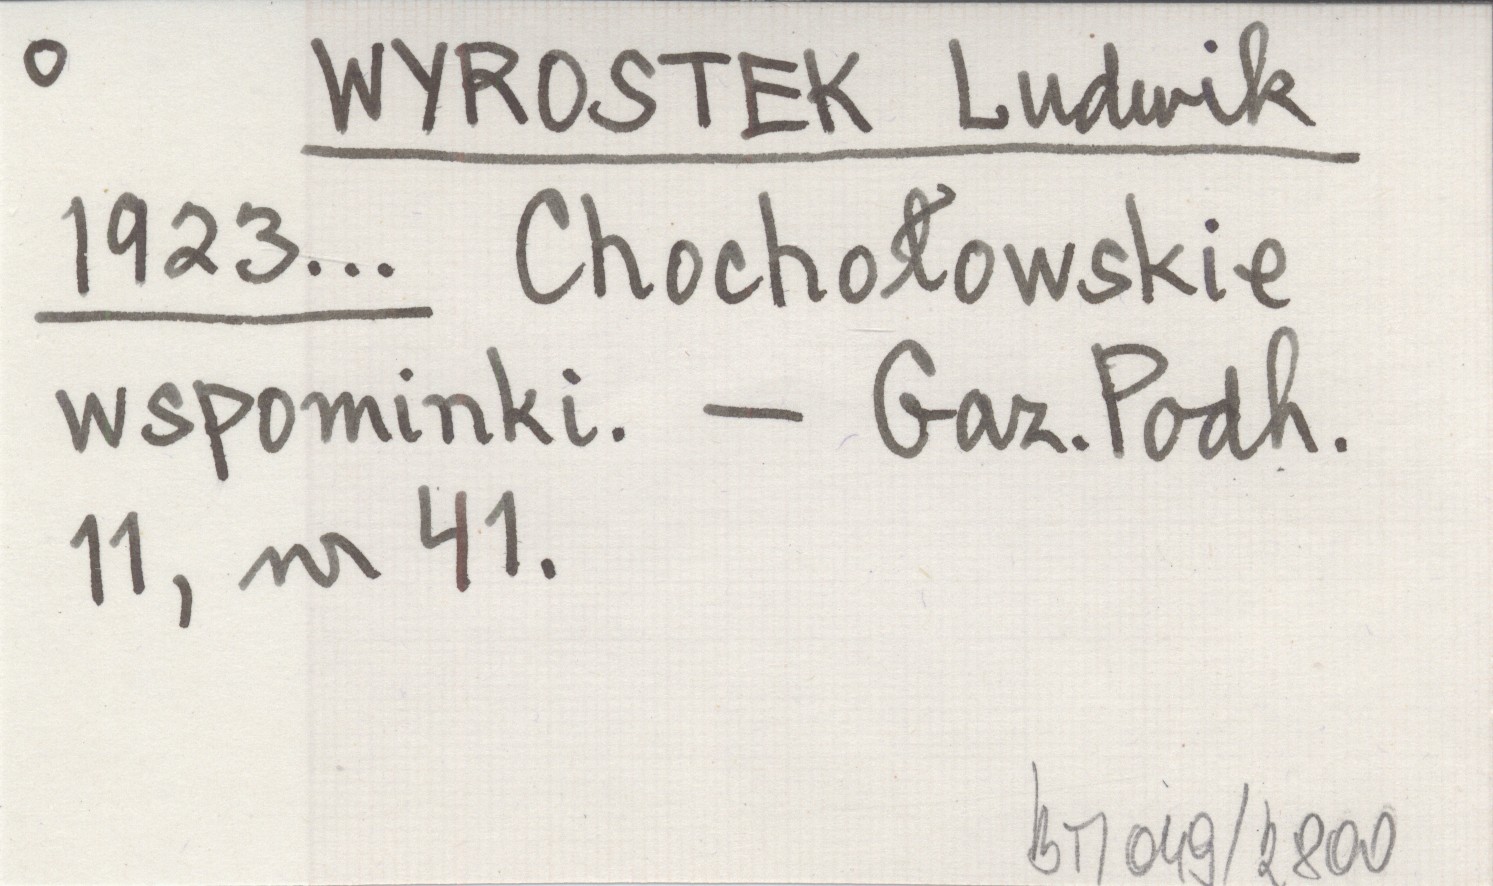 o WYROSTEK Ludwik
1923... Chochołowskie
wspominki. — Gaz. Podh.
11, nr 41.
049/2800